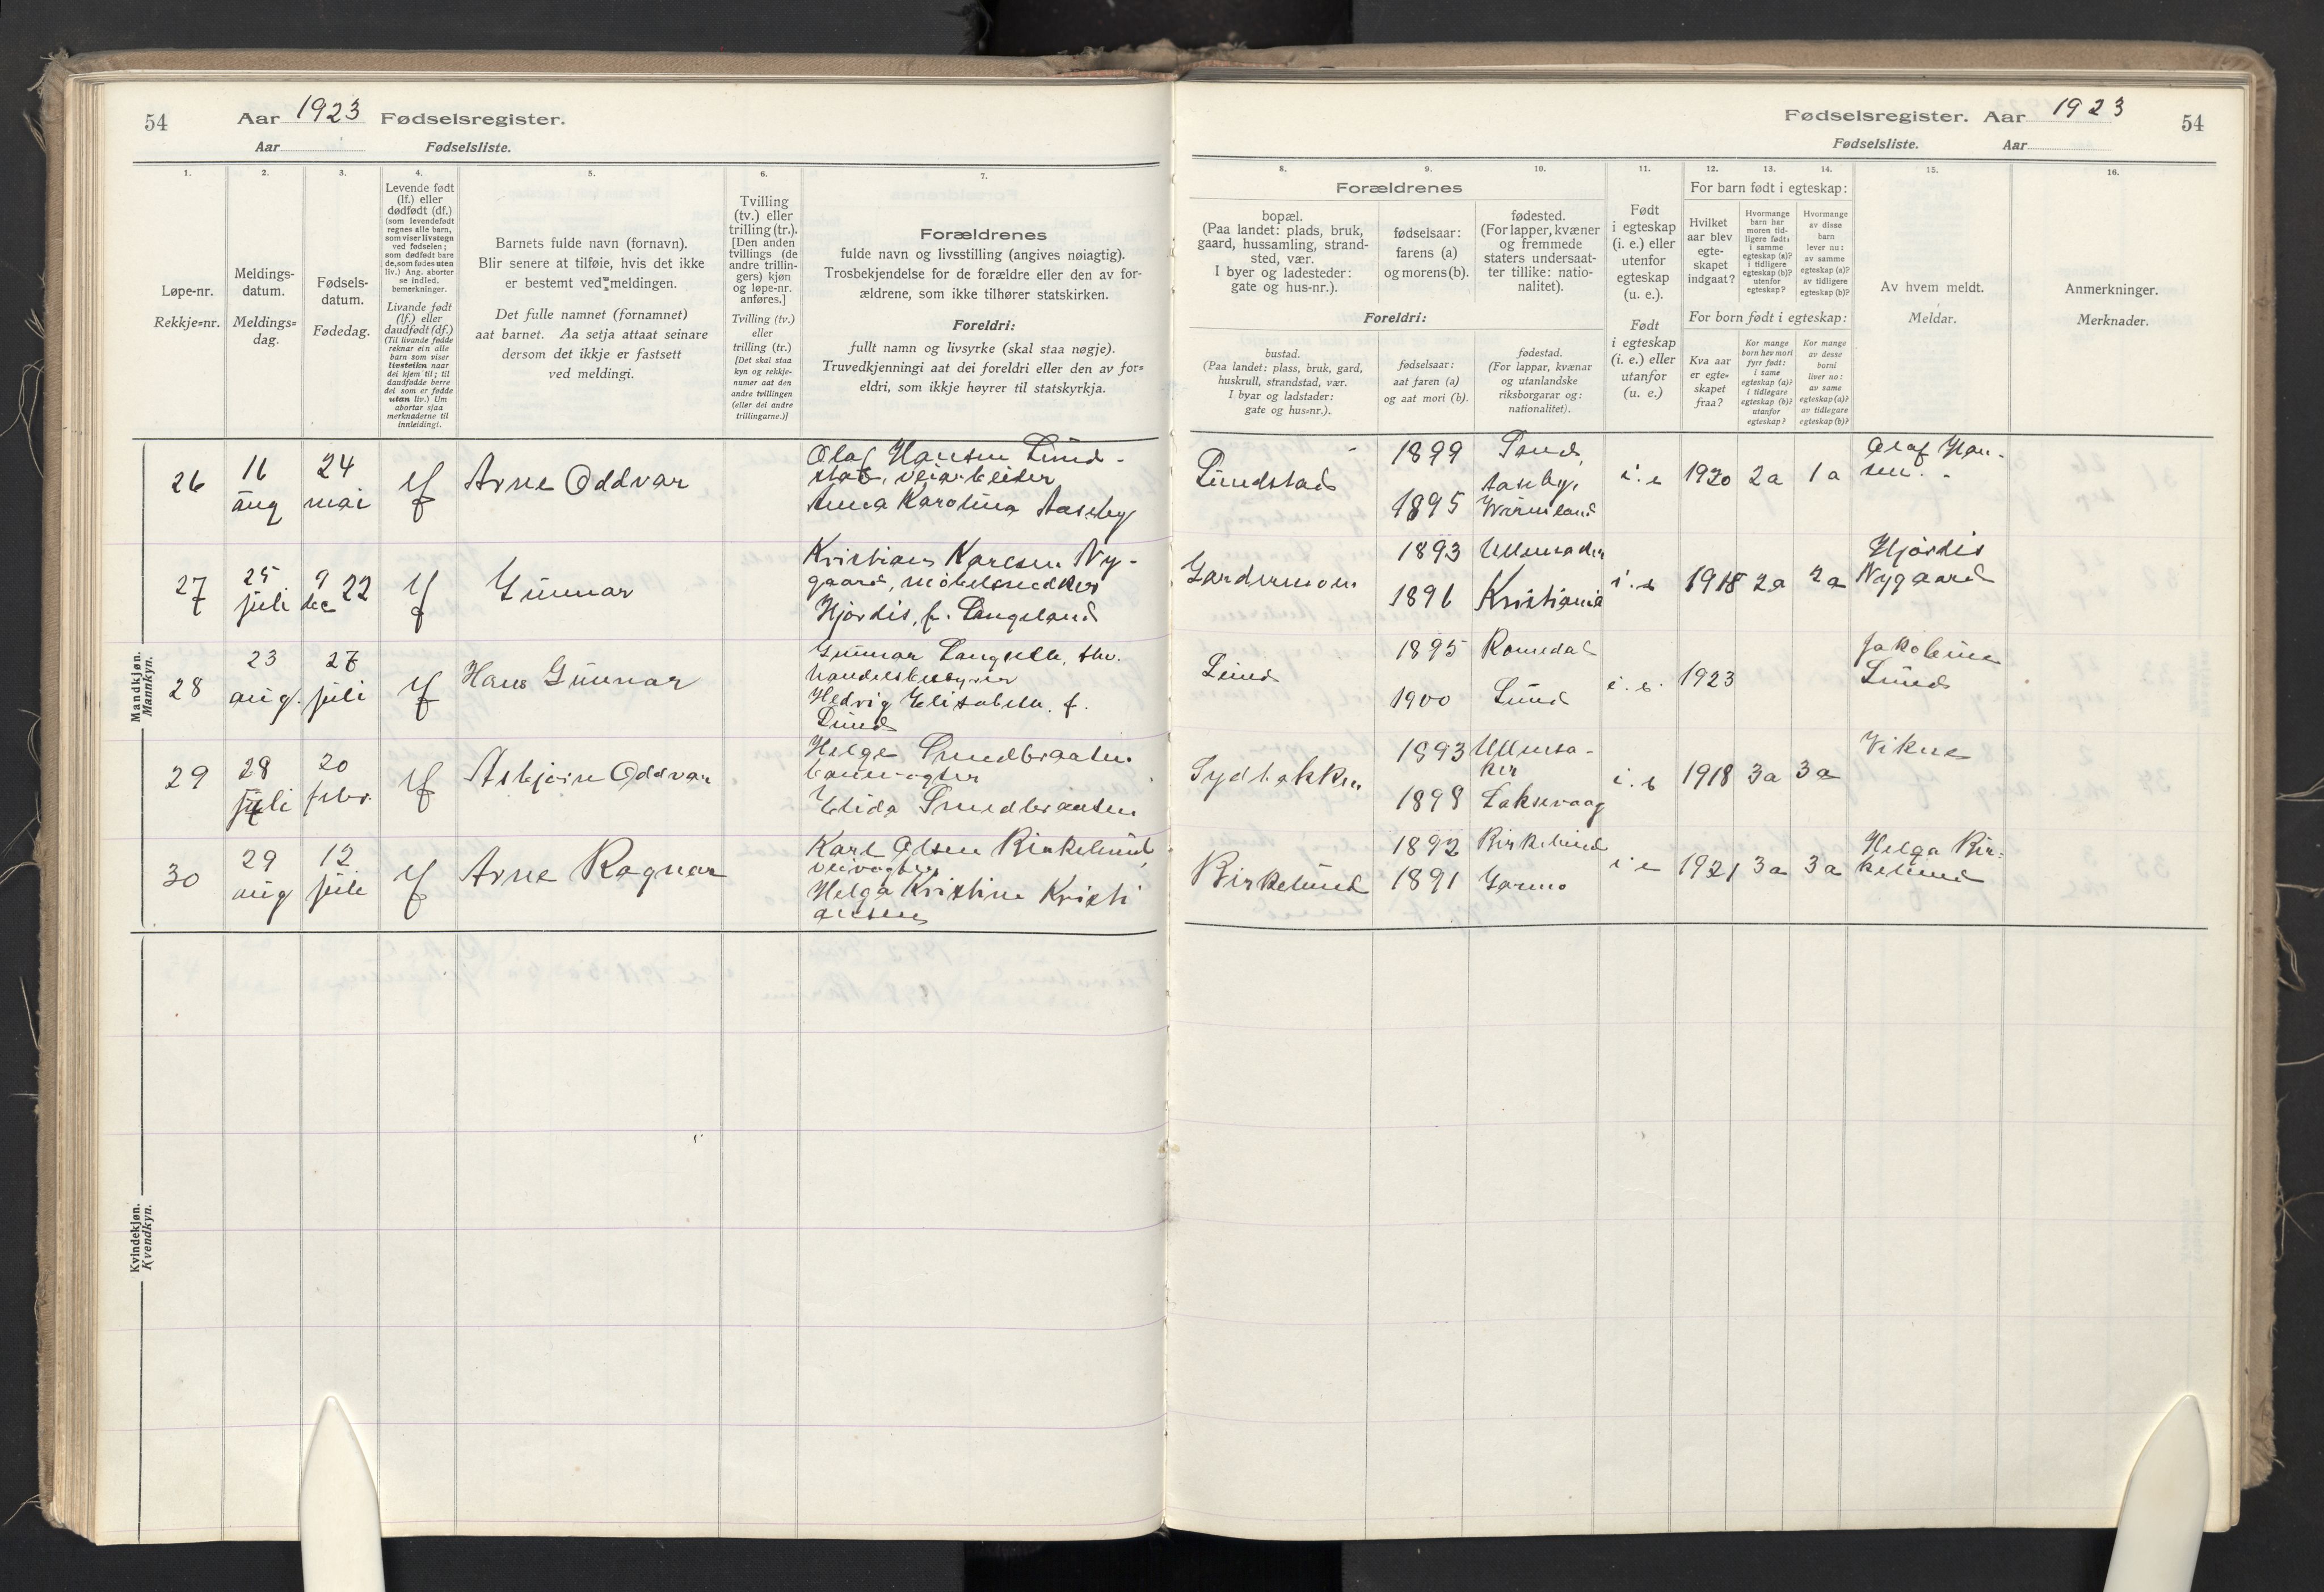 54
Aar 1923 Fødselsregister.
Aar Fødselsliste.
1.
2.
3.
4.
5.
6.
7.
Løpe-nr.
Rekkje=nr.
Meldings-
datum.
Meldings=
dag.
Fødsels-
datum.
Fødedag.
Levende født
(lf.) eller
dødfødt (df.)
(som levendefødt
regnes alle barn,
som viser livstegn
ved fødselen;
som dødfødt bare
de, som fødes uten
liv.) Ang. aborter
se indled.
bemerkninger.
Livande født
(lf.) eller
daudfødt (df.)
(Til livande fødde
reknar ein alle
barn som viser
livsteikn naar
dei kjem til; til
daudfødde berre
dei som er fødde
utan liv.) Um
abortar sjaa
merknaderne til
innleidingi.
Barnets fulde navn (fornavn).
Blir senere at tilføie, hvis det ikke
er bestemt ved meldingen.
Det fulle namnet (fornamnet)
aat barnet. Aa setja attaat seinare
dersom det ikkje er fastsett
ved meldingi.
Tvilling
(tv.) eller
trilling (tr.).
[Den anden
tvillings (de
andre trillin-
gers) kjøn
og løpe-nr.
anføres.]
Tvilling (tv.)
eller
trilling (tr.)
[Det skal staa
kyn og rekkje-
numer aat den
andre tvillingen
(eller dei andre
trillingarne.)]
Forældrenes
fulde navn og livsstilling (angives nøiagtig).
Trosbekjendelse for de forældre eller den av for-
ældrene, som ikke tilhører statskirken.
Foreldri:
fullt namn og livsyrke (skal staa nøgje).
Truvedkjenningi aat dei foreldri eller den av for=
eldri, som ikkje høyrer til statskyrkja.
Mandkjøn.
Mannkyn.
26
16
aug
24
mai
lf
Arne Oddvar
Olaf Hansen Lund-
stad, veiarbeider
Anna Karolina Aaseby
27
25
juli
9
dec 22
lf
Gunnar
Kristian Karlsen Ny-
gaard, møbelsnedker
Hjørdis, f. Langeland
28
23
aug.
27
juli
lf
Hans Gunnar
Gunnar Langseth,
handelsbestyrer
Hedvig Elisabeth. f.
Lund
29
28
juli
20
febr.
lf
Asbjørn Oddvar
Helge Smedbraaten
banevogter
Elida Smedbraaten
30
29
aug
12
juli
lf
Arne Ragnar
Karl Olsen Birkelund,
veivogter
Helga Kristine Kristi
ansen
Kvindekjøn.
Kvendkyn.
Fødselsregister. Aar 1923
54
Fødselsliste. Aar
8.
9.
10.
11.
12.
13.
14.
15.
16.
Forældrenes
bopæl.
(Paa landet: plads, bruk,
gaard, hussamling, strand-
sted, vær.
I byer og ladesteder:
gate og hus-nr.).
fødselsaar:
farens (a)
og morens (b).
fødested.
(For lapper, kvæner
og fremmede
staters undersaat-
ter tillike: natio-
nalitet).
Foreldri:
bustad.
(Paa landet: plass, bruk, gard,
huskrull, strandstad, vær.
I byar og ladstader:
gate og hus=nr.).
fødselsaar:
aat faren (a)
og aat mori (b).
fødestad.
(For lappar, kvænar
og utanlandske
riksborgarar og:
nationalitet).
Født
i egteskap
(i. e.) eller
utenfor
egteskap
(u. e.).
Født
i egteskap
(i. e.) eller
utanfor
(u. e.)
For barn født i egteskap:
Hvilket
aar blev
egte-
skapet
indgaat?
Hvormange
barn har
moren tid-
ligere født:
i samme
egteskap (a)?
i tidligere
egteskap (b)?
utenfor
egteskap?
Hvormange
av disse
barn
lever nu:
av samme
egteskap (a)?
av tidligere
egteskap (b)?
For born født i egteskap:
Kva aar
er egte=
skapet
fraa?
Kor mange
born hev mori
fyrr født:
i same
egteskap (a)?
i tidlegare
egteskap (b)?
utanfor
egteskap?
Kor mange
av desse
borni
liver no:
av same
egteskap (a)?
av tidlegare
egteskap (b)?
Av hvem meldt.
Meldar.
Anmerkninger.
Merknader.
Lundstad
1899
1895
Sand
Aaseby,
Wärmland
i. e
1920
2a
1a
Olaf Han-
sen.
Gardermoen
1893
1896
Ullensaker
Kristiania
i. e
1918
2a
2a
Hjørdis
Nygaard
Lund
1895
1900
Romedal
Lund
i. e.
1923
Jakobine
Lund
Sydbakken
1893
1898
Ullensa-
ker
Laksevaag
i. e
1918
3a
3a
Vikne
Birkelund
1892
1891
Birkelund
Garmo
i e
1921
3a
3a
Helga Bir-
kelund